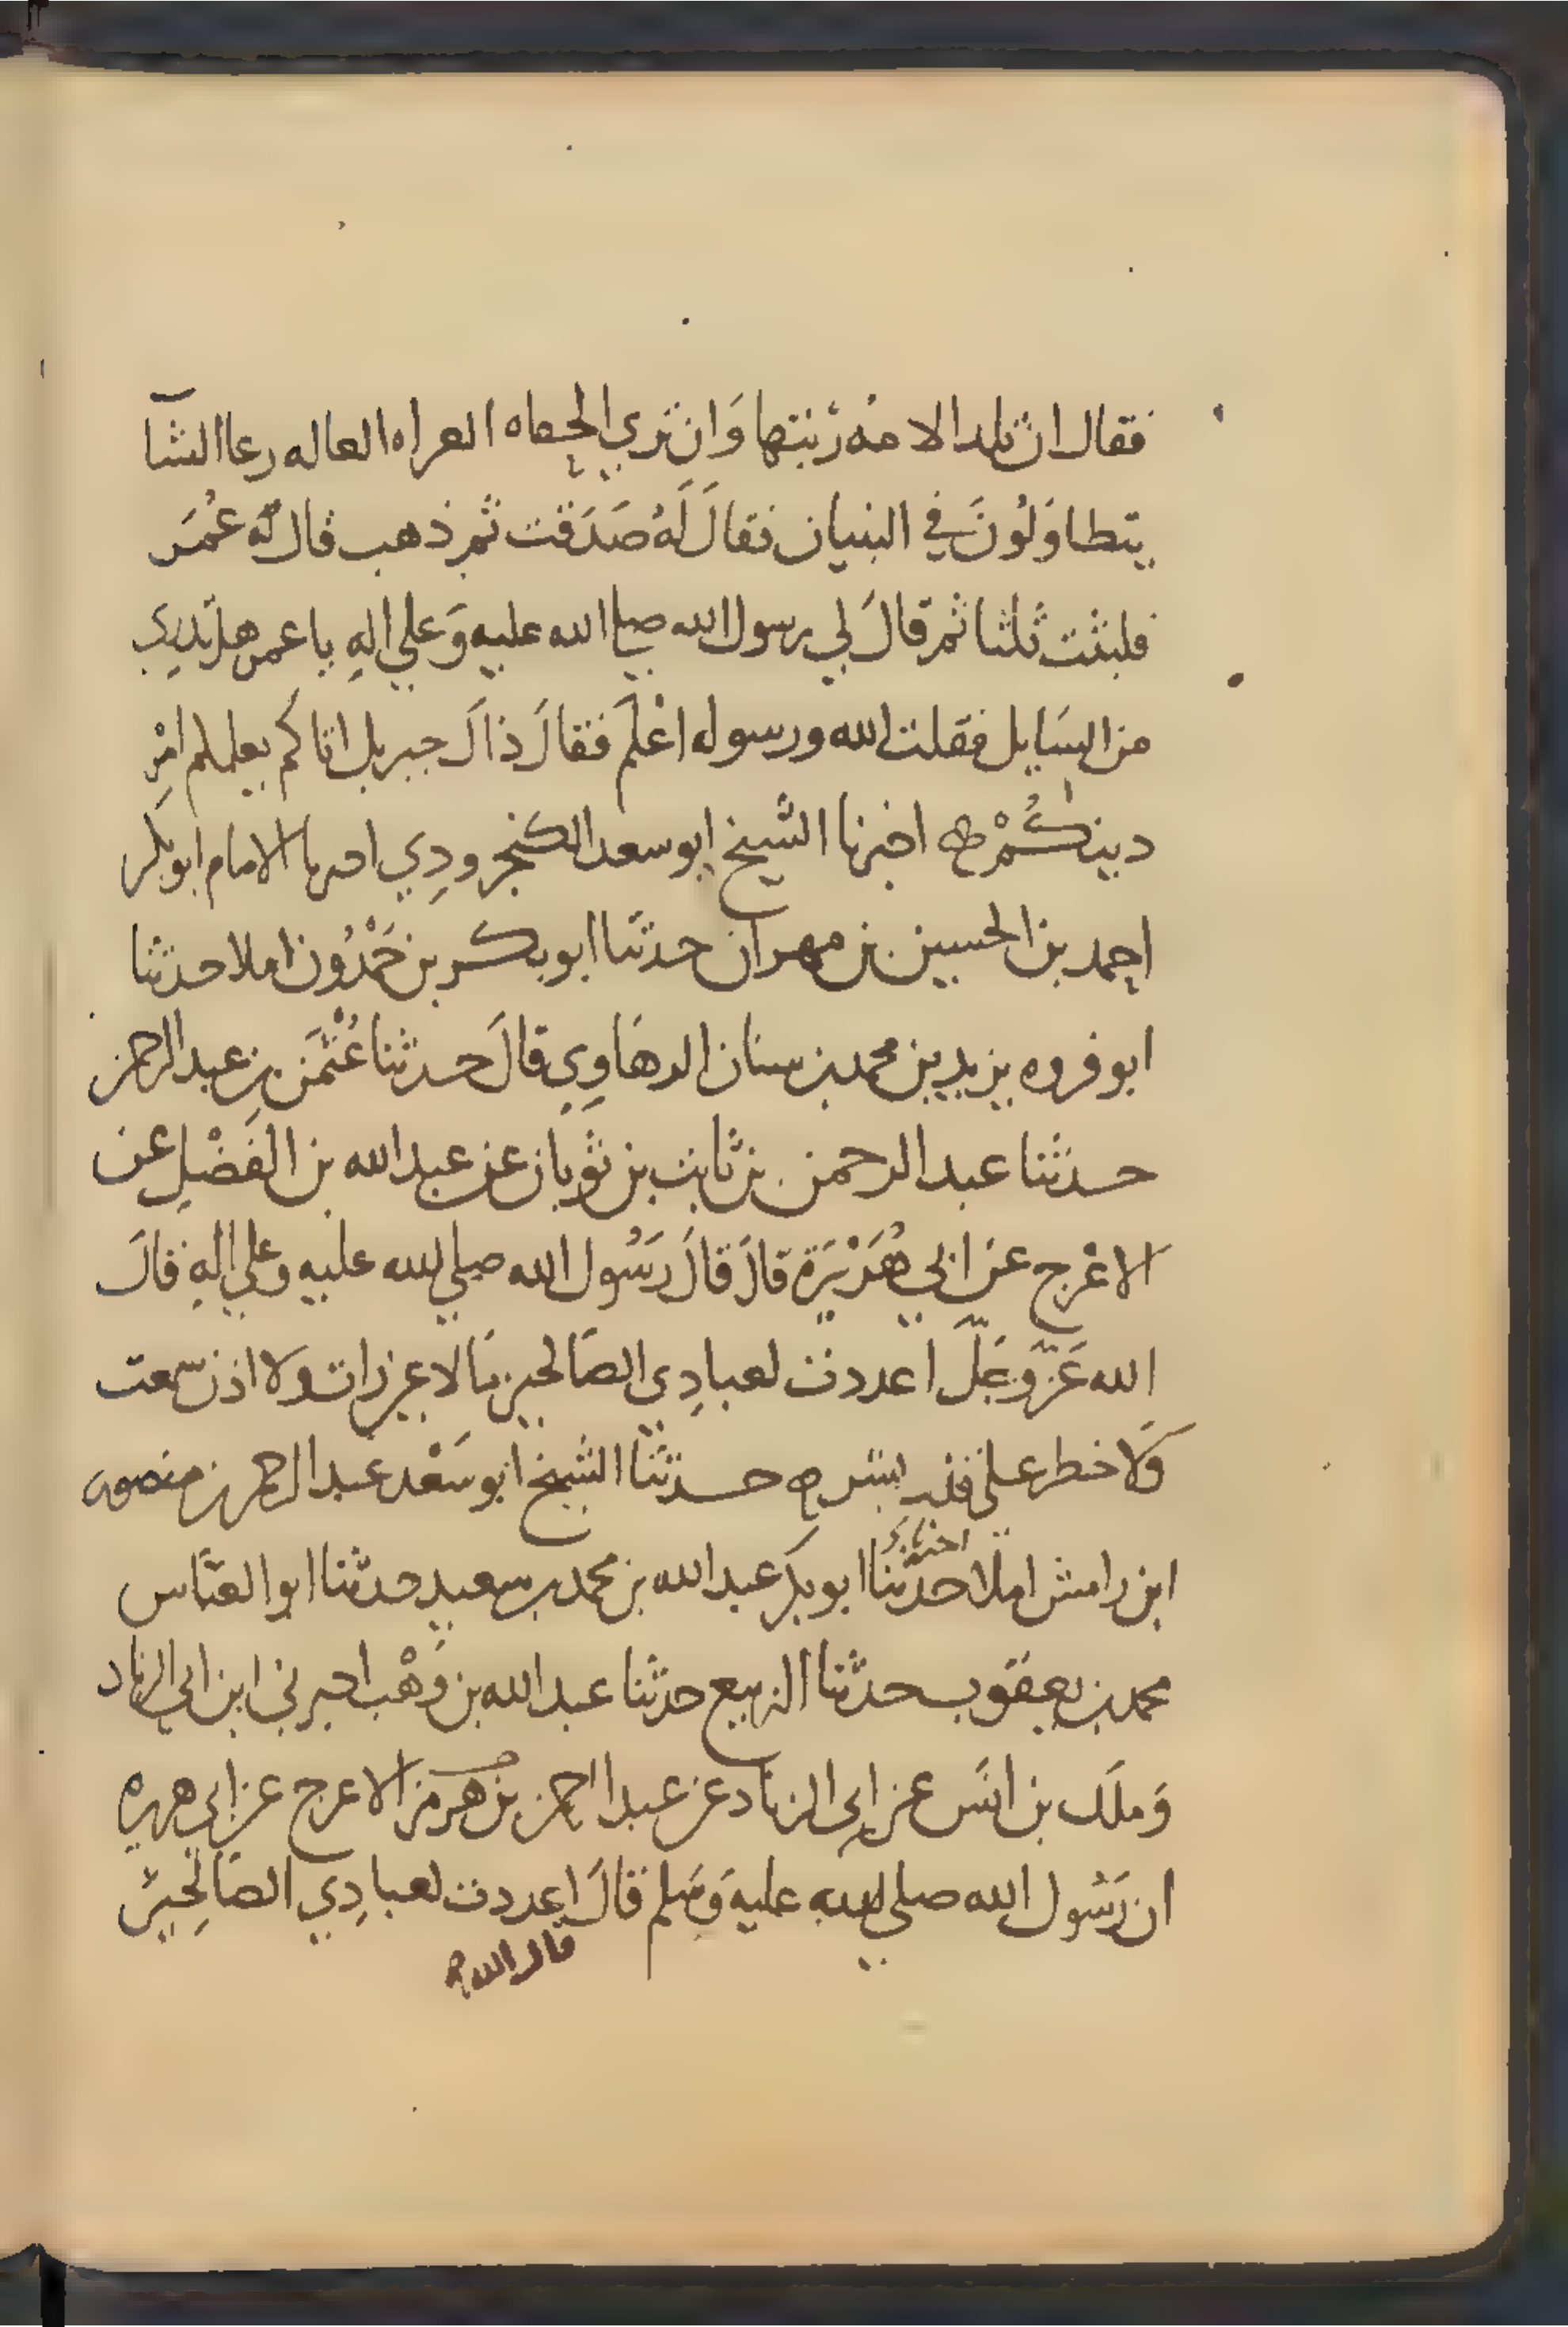 فقال ان تلد الامه رَبتها وَان تري الحفاه العراه العاله رعا الشآ
يتطاوَلُونَ في البنيان فقالَ لَهُ صَدَقت ثم ذهب قال له عُمَر
فلبثت ثلثا ثم قالَ لي رسول الله صلي الله عليه وَعلي الهِ يا عمر هل تدرِي
من السَايل فقلت الله ورسوله اعْلم فقالَ ذاكَ جبريل اتاكم يعلمكم امْرِ
دينكُمْ ه اخبرنا الشيخ ابو سعد الكنجرودِي اخبرنا الامام ابو بكر
احمد بن الحسين بن مهران حدثنا ابو بكر بن حَمْدُون املا حدثنا
ابو فروه يزيد بن محمد بن سنان الرهَاوِي قالَ حدثنا عُثْمَن بن عبد الرحمن
حدثنا عبد الرحمن بن ثابت بن ثَوبان عن عبد الله بن الفَضْلِ عن
الاعْرج عن ابي هُرَيْرَة قالَ قالَ رَسُول الله صلي الله عليه وعلي الهِ قالَ
الله عَزّ وَجَلّ اعددت لعبادِي الصَالحين مَا لا عين رات ولا اذن سمعت
وَلا خطر على قلب بشر ه حدثنا الشيخ ابو سَعْد عبد الرحمن بن منصور
ابن رامش املا حدثنا ابو بكر عبد الله بن محمد بن سعيد حدثنا ابو العبَّاس
اخبرنا
محمد بن يعقوب حدثنا الربيع حدثنا عبد الله بن وَهْب اخبرني ابن ابي الزناد
وَملَك بن انَس عن ابي الزناد عن عبد الرحمن بن هرمز الاعرج عن ابي هريره
ان رَسُول الله صلي الله عليه وَسَلم قالَ اعددت لعبادِي الصَالِحين
قال الله